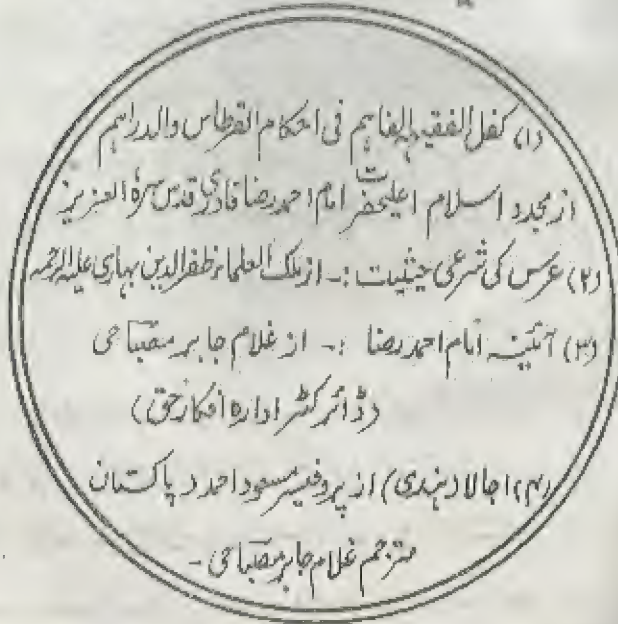 (۱) کفل الفقیہ الفاہم فی احکام القرطاس والدراہم
از مجدد اسلام اعلیحضرت امام احمد رضا قادری قدس سرہٗ العزیز
(۲) عرس کی شرعی حیثیت :۔ از ملک العلماء ظفر الدین بہاری علیہ الرحمہ
(۳) آئینہ امام احمد رضا :۔ از غلام جابر مصباحی
(ڈائرکٹر ادارہ افکار حق)
(۴) اجالا (ہندی) از پروفیسر مسعود احمد د پاکستان
مترجم غلام جابر مصباحی ۔